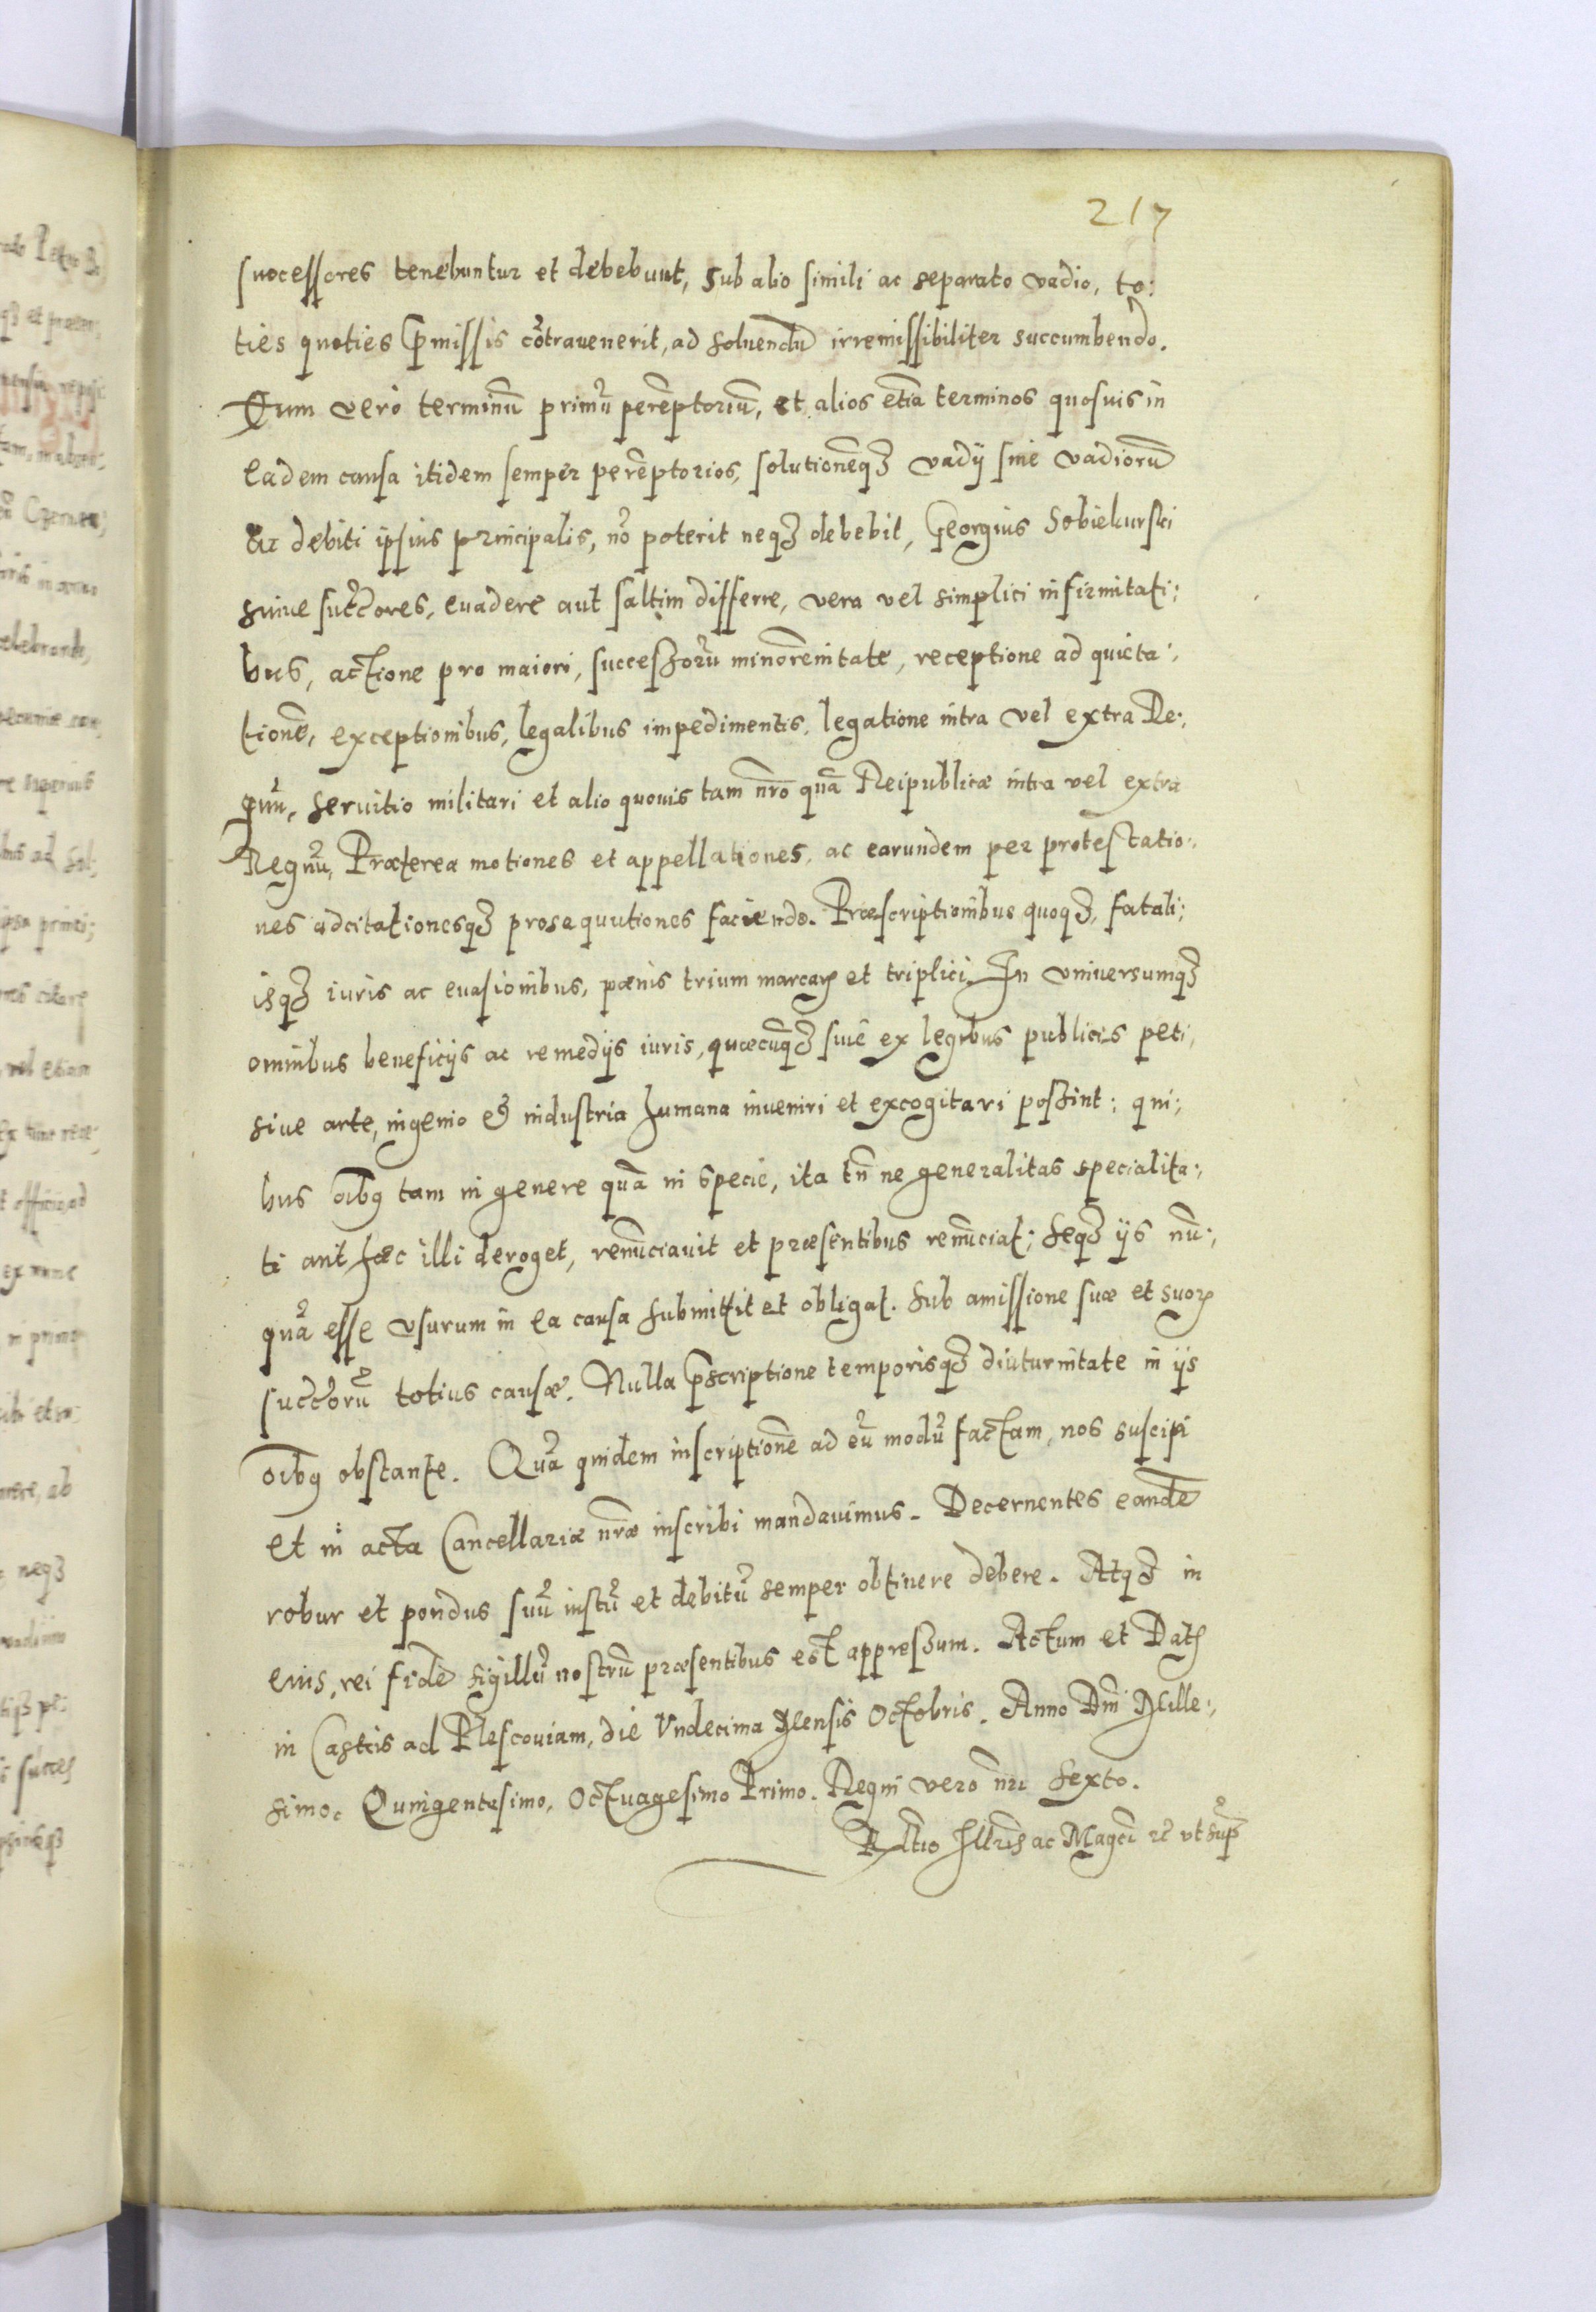 217
successores tenebuntur et debebunt, sub alio simili ac separato vadio, to:
ties quoties p̄missis cōtrauenerit, ad soluendū irremissibiliter succumbendo.
Quem vero terminū primū perēptoriū, et alios etiā terminos quosuis in
eadem causa itidem semper perēptorios, solutionēqꝫ vadij siue vadiorū
ac debiti ipsius principalis, nō poterit neqꝫ debebit, Georgius Sobiekurski
suiue succ̄ores, euadere aut saltim differre, vera vel simplici infirmitati:
bus, actione pro maiori, successorū minorennitate, receptione ad quieta:
tionē, exceptionibus, legalibus impedimentis, legatione intra vel extra Re:
gnū, seruitio militari et alio quouis tam nr̄o quā Reipublicæ intra vel extra
Regnū, Præterea motiones et appellationes, ac earundem per protestatio:
nes adcitationesqꝫ prosequutiones faciendo. Præscriptionibus quoqꝫ, fatali:
isqꝫ iuris ac euasionibus, pœnis trium marcaꝝ et triplici. In vniversumqꝫ
omnibus beneficijs ac remedijs iuris, quæcūqꝫ siue ex legibus publicis peti,
siue arte, ingenio et industria humana inveniri et excogitari possint: qui:
bus oībꝫ tam in genere quā in specie, ita tn̄ ne generalitas specialita:
ti aut hæc illi deroget, renūciauit et præsentibus renūciat; seqꝫ ijs nū:
quā esse vsurum in ea causa submittit et obligat. sub amissione suæ et suoꝝ
succ̄orū totius causæ. Nulla p̄scriptione temporisqꝫ diuturnitate in ijs
oībꝫ obstante. Quā quidem inscriptionē ad eū modū factam, nos suscipi
et in acta Cancellariæ nr̄æ inscribi mandauimus. Decernentes eandē
robur et pondus suū iustū et debitū semper obtinere debere. Atqꝫ in
eius, rei fidē sigillū nostrū præsentibus est appressum. Actum et Datꝫ
in Castris ad Plescouiam, die Vndecima Mensis Octobris. Anno Dn̄i Mille:
simo. Quingentesimo, Octuagesimo Primo. Regni vero nr̄i sexto.
Rl̄tio Illris ac Magci ꝛc̄ vt sup̄